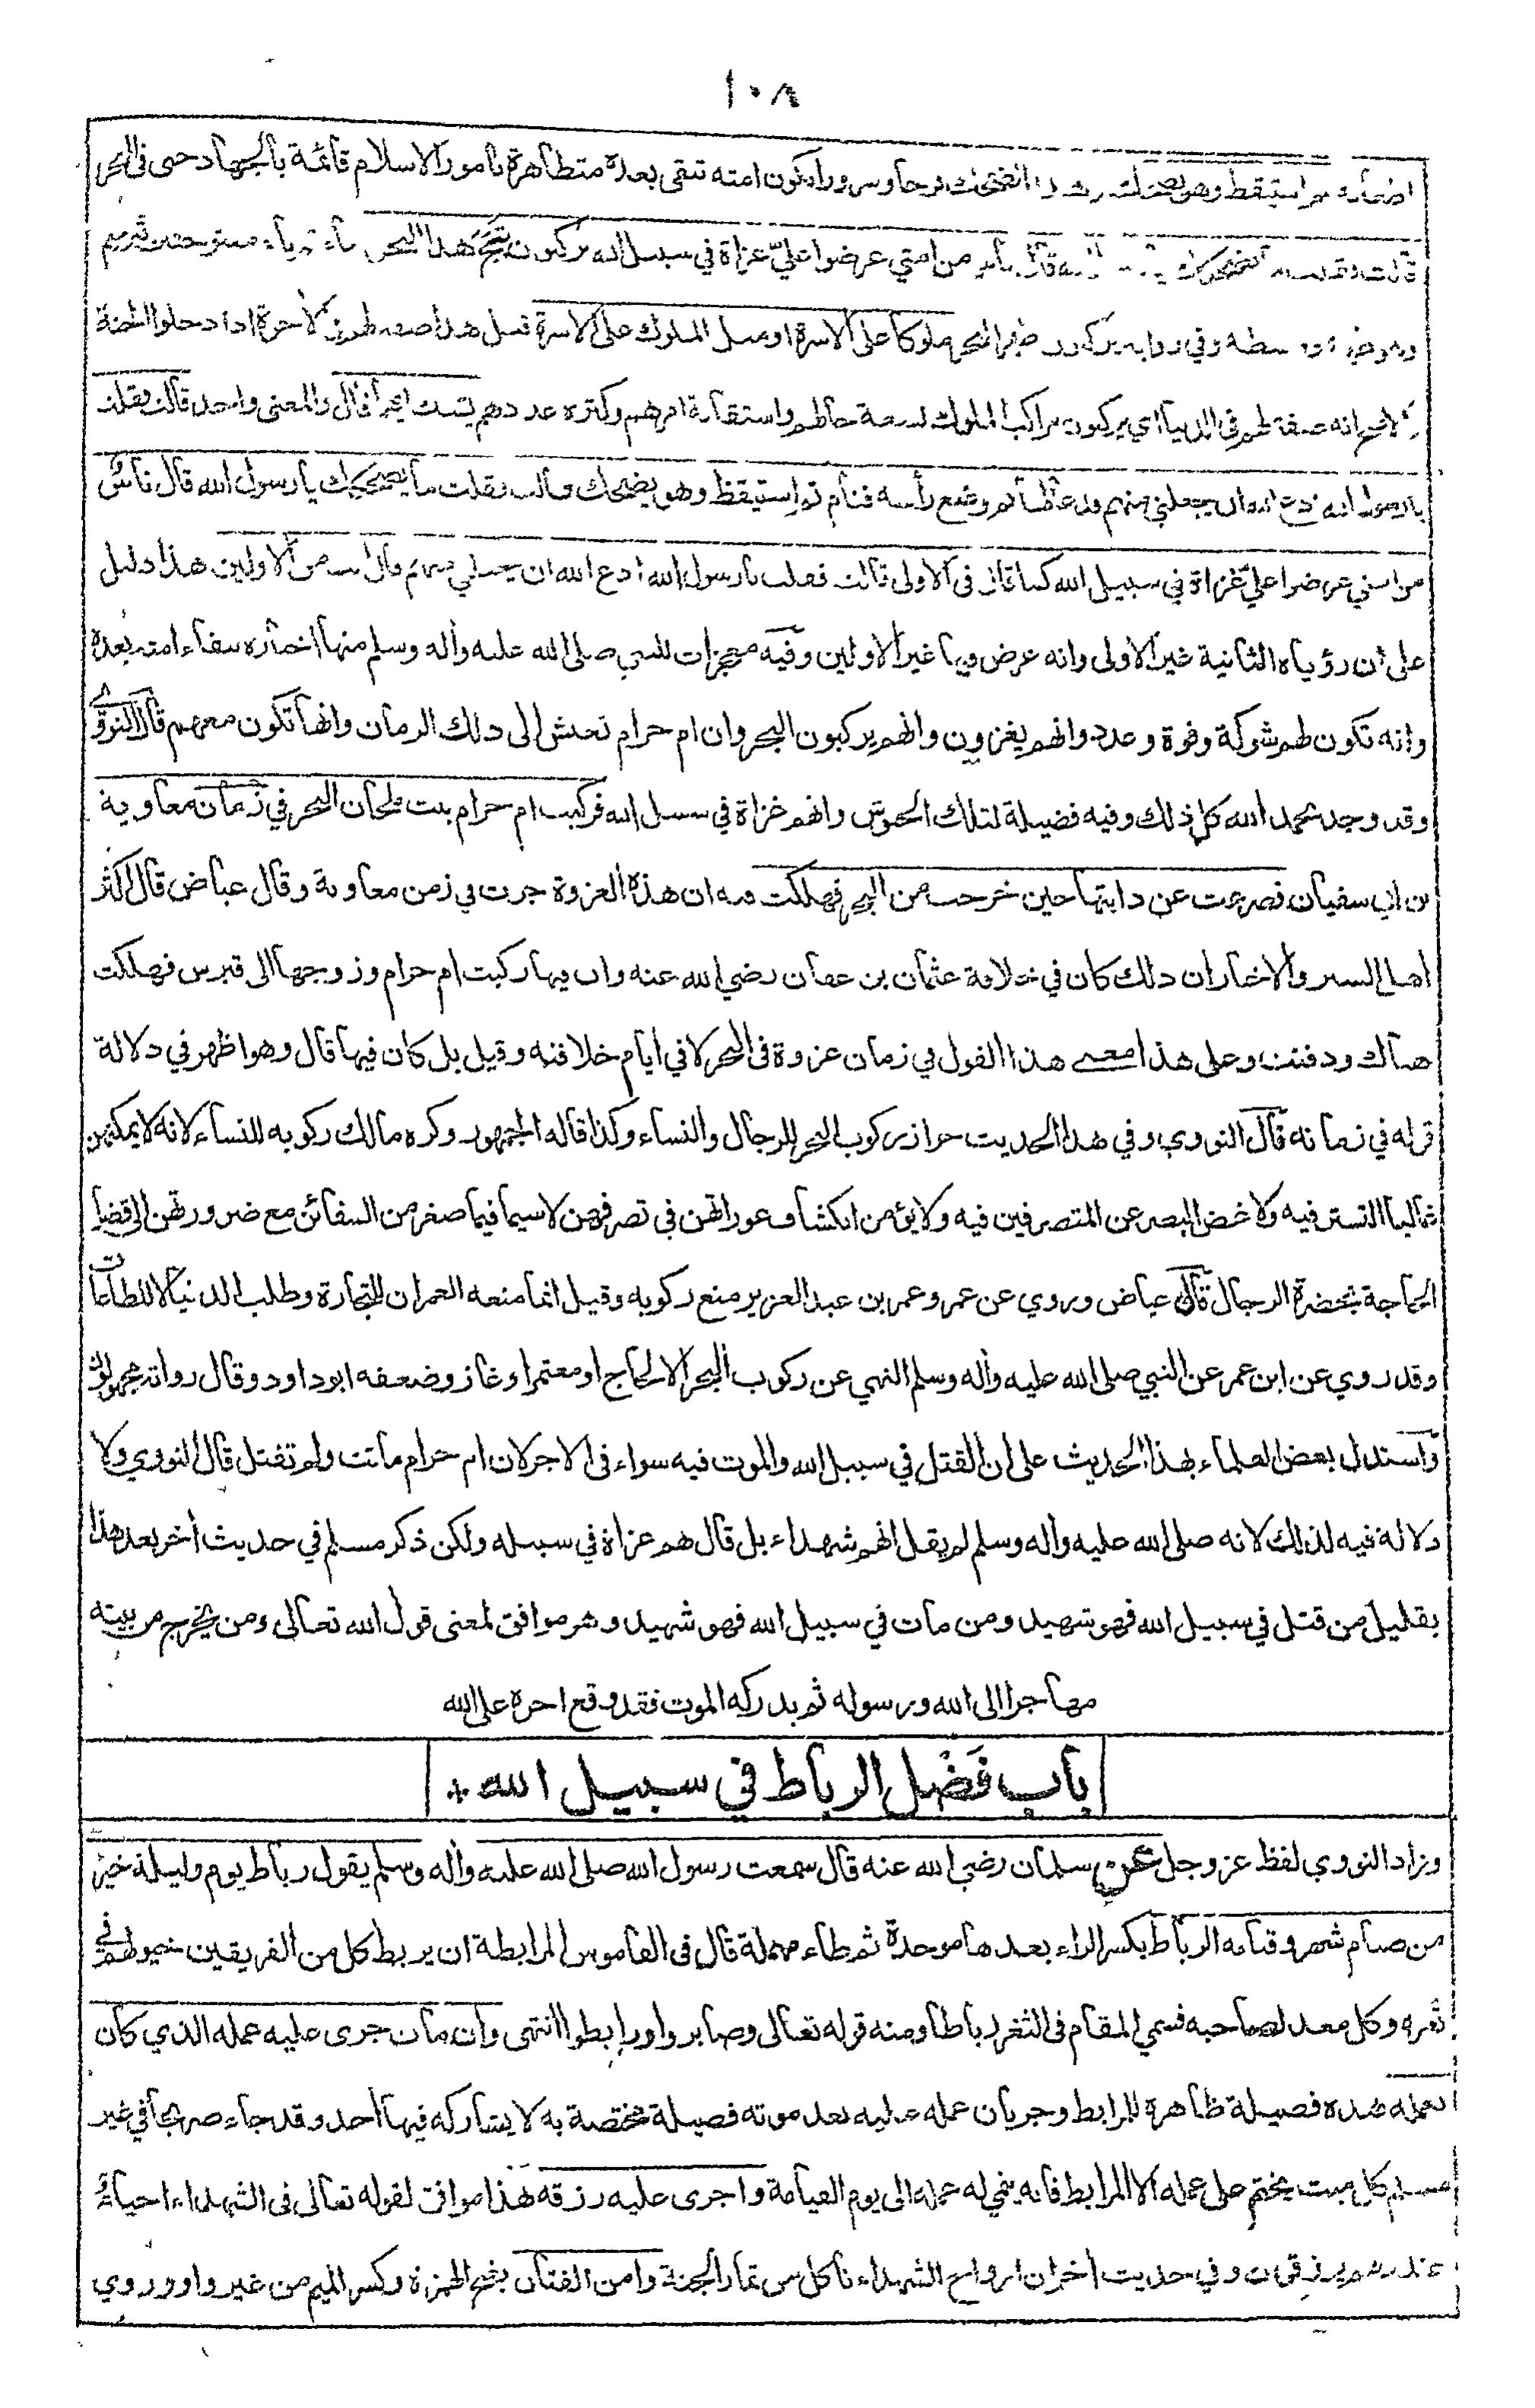 ١٠٨
استيقظ وهو يضحك فرحا وسرورا بكون امته تبقى بعده متظاهرة بامور الاسلام قائمة بالجهاد حتى في البحر
قالت فقلت ما يضحكك قال ناس من امتي عرضوا علي غزاة في سبيل الله يركبون ثبج هذا البحر
وفي رواية يركبون ظهر البحر ملوكا على الاسرة او مثل الملوك على الاسرة قيل هذا صفة لهم في الاخرة اذا دخلوا الجنة
انه صفة لهم في الدنيا اي يركبون مراكب الملوك لسعة حالهم واستقامة امرهم وكثرة عددهم قال والمعنى واحد قالت فقلت
يا رسول الله ادع الله ان يجعلني منهم فدعا لها ثم وضع رأسه فنام ثم استيقظ وهو يضحك قالت فقلت ما يضحكك يا رسول الله قال ناس
من امتي عرضوا علي غزاة في سبيل الله كما قال في الاولى قالت فقلت يا رسول الله ادع الله ان يجعلني منهم قال انت من الاولين هذا دليل
على ان رؤياه الثانية غير الاولى وانه عرض فيها غير الاولين وفيه معجزات للنبي صلى الله عليه وأله وسلم منها اخباره ببقاء امته بعده
وانه تكون لهم شوكة وقوة وعدد وانهم يغزون وانهم يركبون البحر وان ام حرام تعيش الى ذلك الزمان وانها تكون معهم قال النووي
وقد وجد بحمد الله كل ذلك وفيه فضيلة لتلك الجيوش وانهم غزاة في سبيل الله فركبت ام حرام بنت ملحان البحر في زمان معاوية
بن ابي سفيان فصرعت عن دابتها حين خرجت من البحر فهلكت فيه ان هذه الغزوة جرت في زمن معاوية وقال عياض قال اكثر
اهل السير والاخبار ان ذلك كان في خلافة عثمان بن عفان رضي الله عنه وان فيها ركبت ام حرام وزوجها الى قبرس فهلكت
هناك ودفنت وعلى هذا معنى هذا القول في زمان غزوة في البحر لا في ايام خلافته وقيل بل كان فيها قال وهو اظهر في دلالة
قوله في زمانه قال النووي وفي هذا الحديث جواز ركوب البحر للرجال والنساء وكذا قاله الجمهور وكره مالك ركوبه للنساء لانه لا يمكنهن
غالبا التستر فيه ولا غض البصر عن المتصرفين فيه ولا يؤمن انكشاف عوراتهن في تصرفهن لا سيما فيما صغر من السفائن مع ضرورتهن الى قضاء
الحاجة بحضرة الرجال قال عياض وروي عن عمر وعمر بن عبد العزيز منع ركوبه وقيل انما منعه العمران للتجارة وطلب الدنيا لا للطاعات
وقد روي عن ابن عمر عن النبي صلى الله عليه وأله وسلم النهي عن ركوب البحر الا لحاج او معتمر او غاز وضعفه ابو داود وقال رواته مجهولون
واستدل بعض العلماء بهذا الحديث على ان القتل في سبيل الله والموت فيه سواء في الاجر لان ام حرام ماتت ولم تقتل قال النووي ولا
دلالة فيه لذلك لانه صلى الله عليه وأله وسلم لم يقل انهم شهداء بل قال هم غزاة في سبيله ولكن ذكر مسلم في حديث أخر بعد هذا
بقليل من قتل في سبيل الله فهو شهيد ومن مات في سبيل الله فهو شهيد وهو موافق لمعنى قول الله تعالى ومن يخرج من بيته
مهاجرا الى الله ورسوله ثم يدركه الموت فقد وقع اجره على الله
باب فَضْل الرباط في سبيل الله
وزاد النووي لفظ عز وجل عن سلمان رضي الله عنه قال سمعت رسول الله صلى الله عليه وأله وسلم يقول رباط يوم وليلة خير
من صيام شهر وقيامه الرباط بكسر الراء بعدها موحدة ثم طاء مهملة قال في القاموس المرابطة ان يربط كل من الفريقين خيولهم في
ثغره وكل معد لصاحبه فسمي المقام في الثغر رباطا ومنه قوله تعالى وصابروا ورابطوا انتهى وان مات جرى عليه عمله الذي كان
يعمله هذه فضيلة ظاهرة للمرابط وجريان عمله عليه بعد موته فضيلة مختصة به لا يشاركه فيها احد وقد جاء صريحا في غير
مسلم كل ميت يختم على عمله الا المرابط فانه ينمي له عمله الى يوم القيامة واجرى عليه رزقه هذا موافق لقوله تعالى في الشهداء احياء
عند ربهم يرزقون وفي حديث أخر ان ارواح الشهداء تأكل من ثمار الجنة وامن الفتان بفتح الهمزة وكسر الميم من غير واو وروي